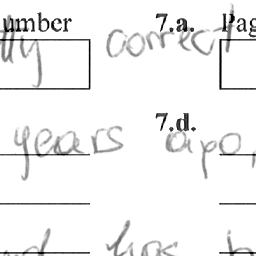 umber 7.a. Pag
ly correct
years 7.d. ago,
has